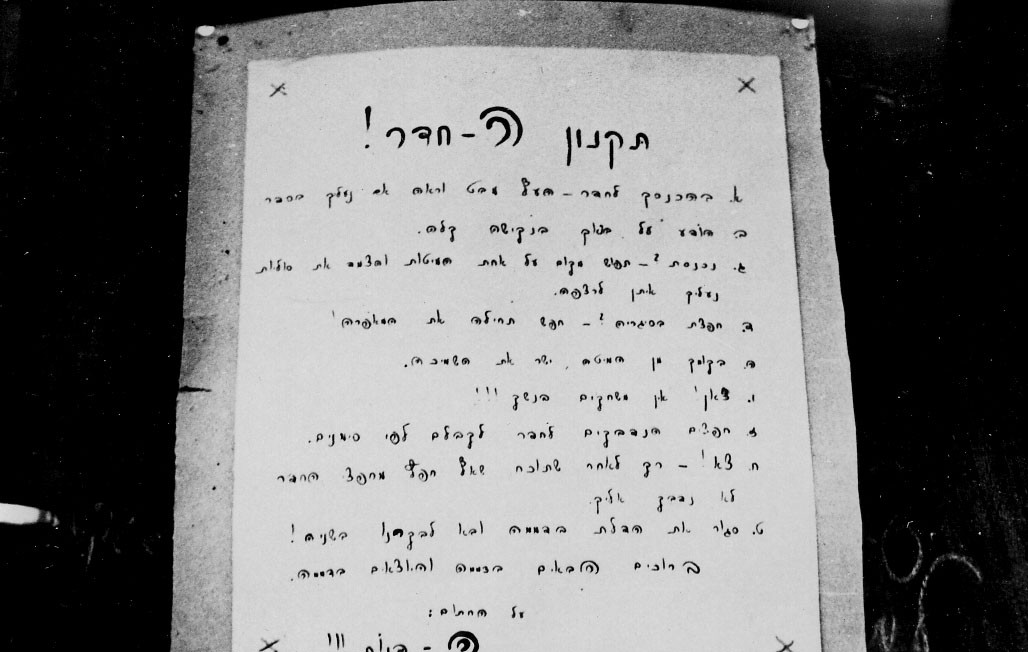 תקנון ה-חדר!
א. בהכנסך לחדר - העף מבט וראה אם נעלך בסדר
ב. הודע על בנקישה קלה.
ג. נכנסת? - תפוש מקום על אחת המיטות והצמד את סוליות
נעליך איתן לרצפה.
ד. חפצת בסיגריה? - חפש תחילה את המאפרה!
ה. בקומך מן המיטה, ישר את השמיכה.
ו. כאן! אין משחקים בנשק!!!
ז. חפצים הנדבקים לחבר לקבלם לפי סימנים.
ח. צא! - רק לאחר שתוכח שאף חפץ מחפצי החדר
לא נדבק אליך.
ט. סגור את הדלת בדממה ובא לבקרנו בשנית!
ברוכים הבאים בדממה והיוצאים בדממה.
על החתום:
ה -